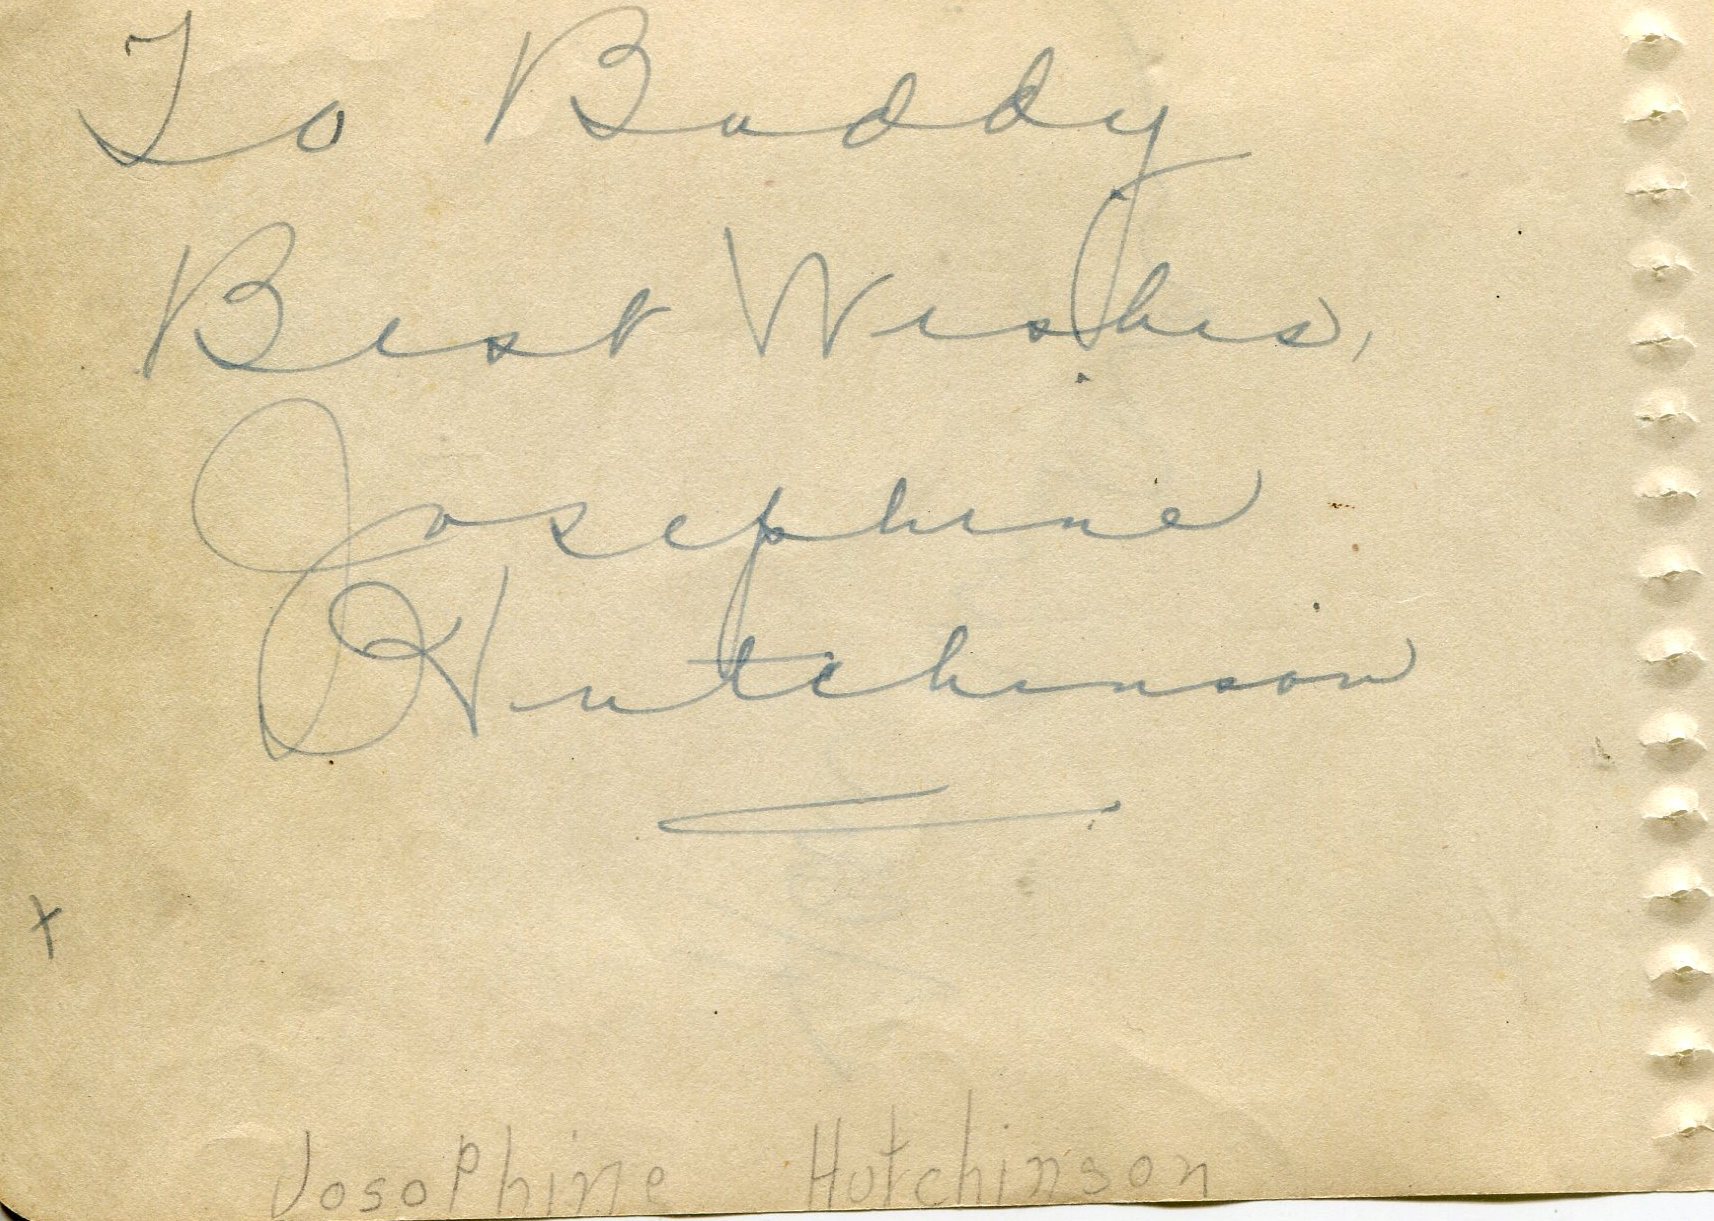 To Buddy
Best Wishes,
Josephine
Hutchinson
x
JosoPhine Hutchinson